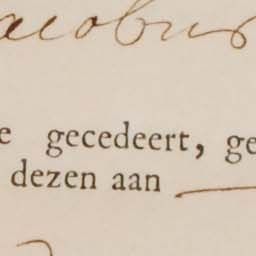 acobus
e gecedeert, ge
dezen aan